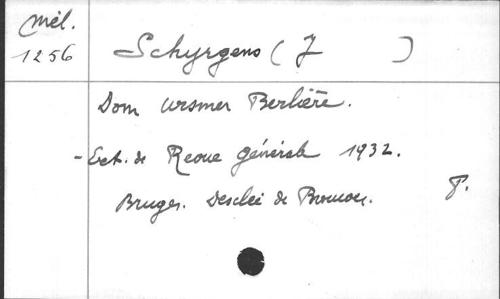 Mél.
1256
Schyrgens (J )
Dom Ursmer Berlière.
- Ext. de Revue générale 1932.
Bruges. Desclée de Brouwer. P.